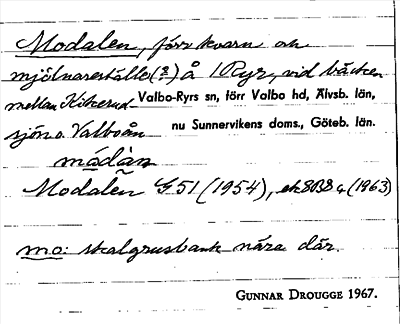 Modalen, förr kvarn och
mjölnareställe (?) å 1 Ryr, vid bäcken
mellan Kikerud
Valbo-Ryrs sn, förr Valbo hd, Älvsb. län,
sjön o. Valboån
nu Sunnervikens doms., Göteb. län.
mádàn
Modalen G.51 (1954), ek 8 (1963)
mo: skalgrusbank nära där.
GUNNAR DROUGGE 1967.